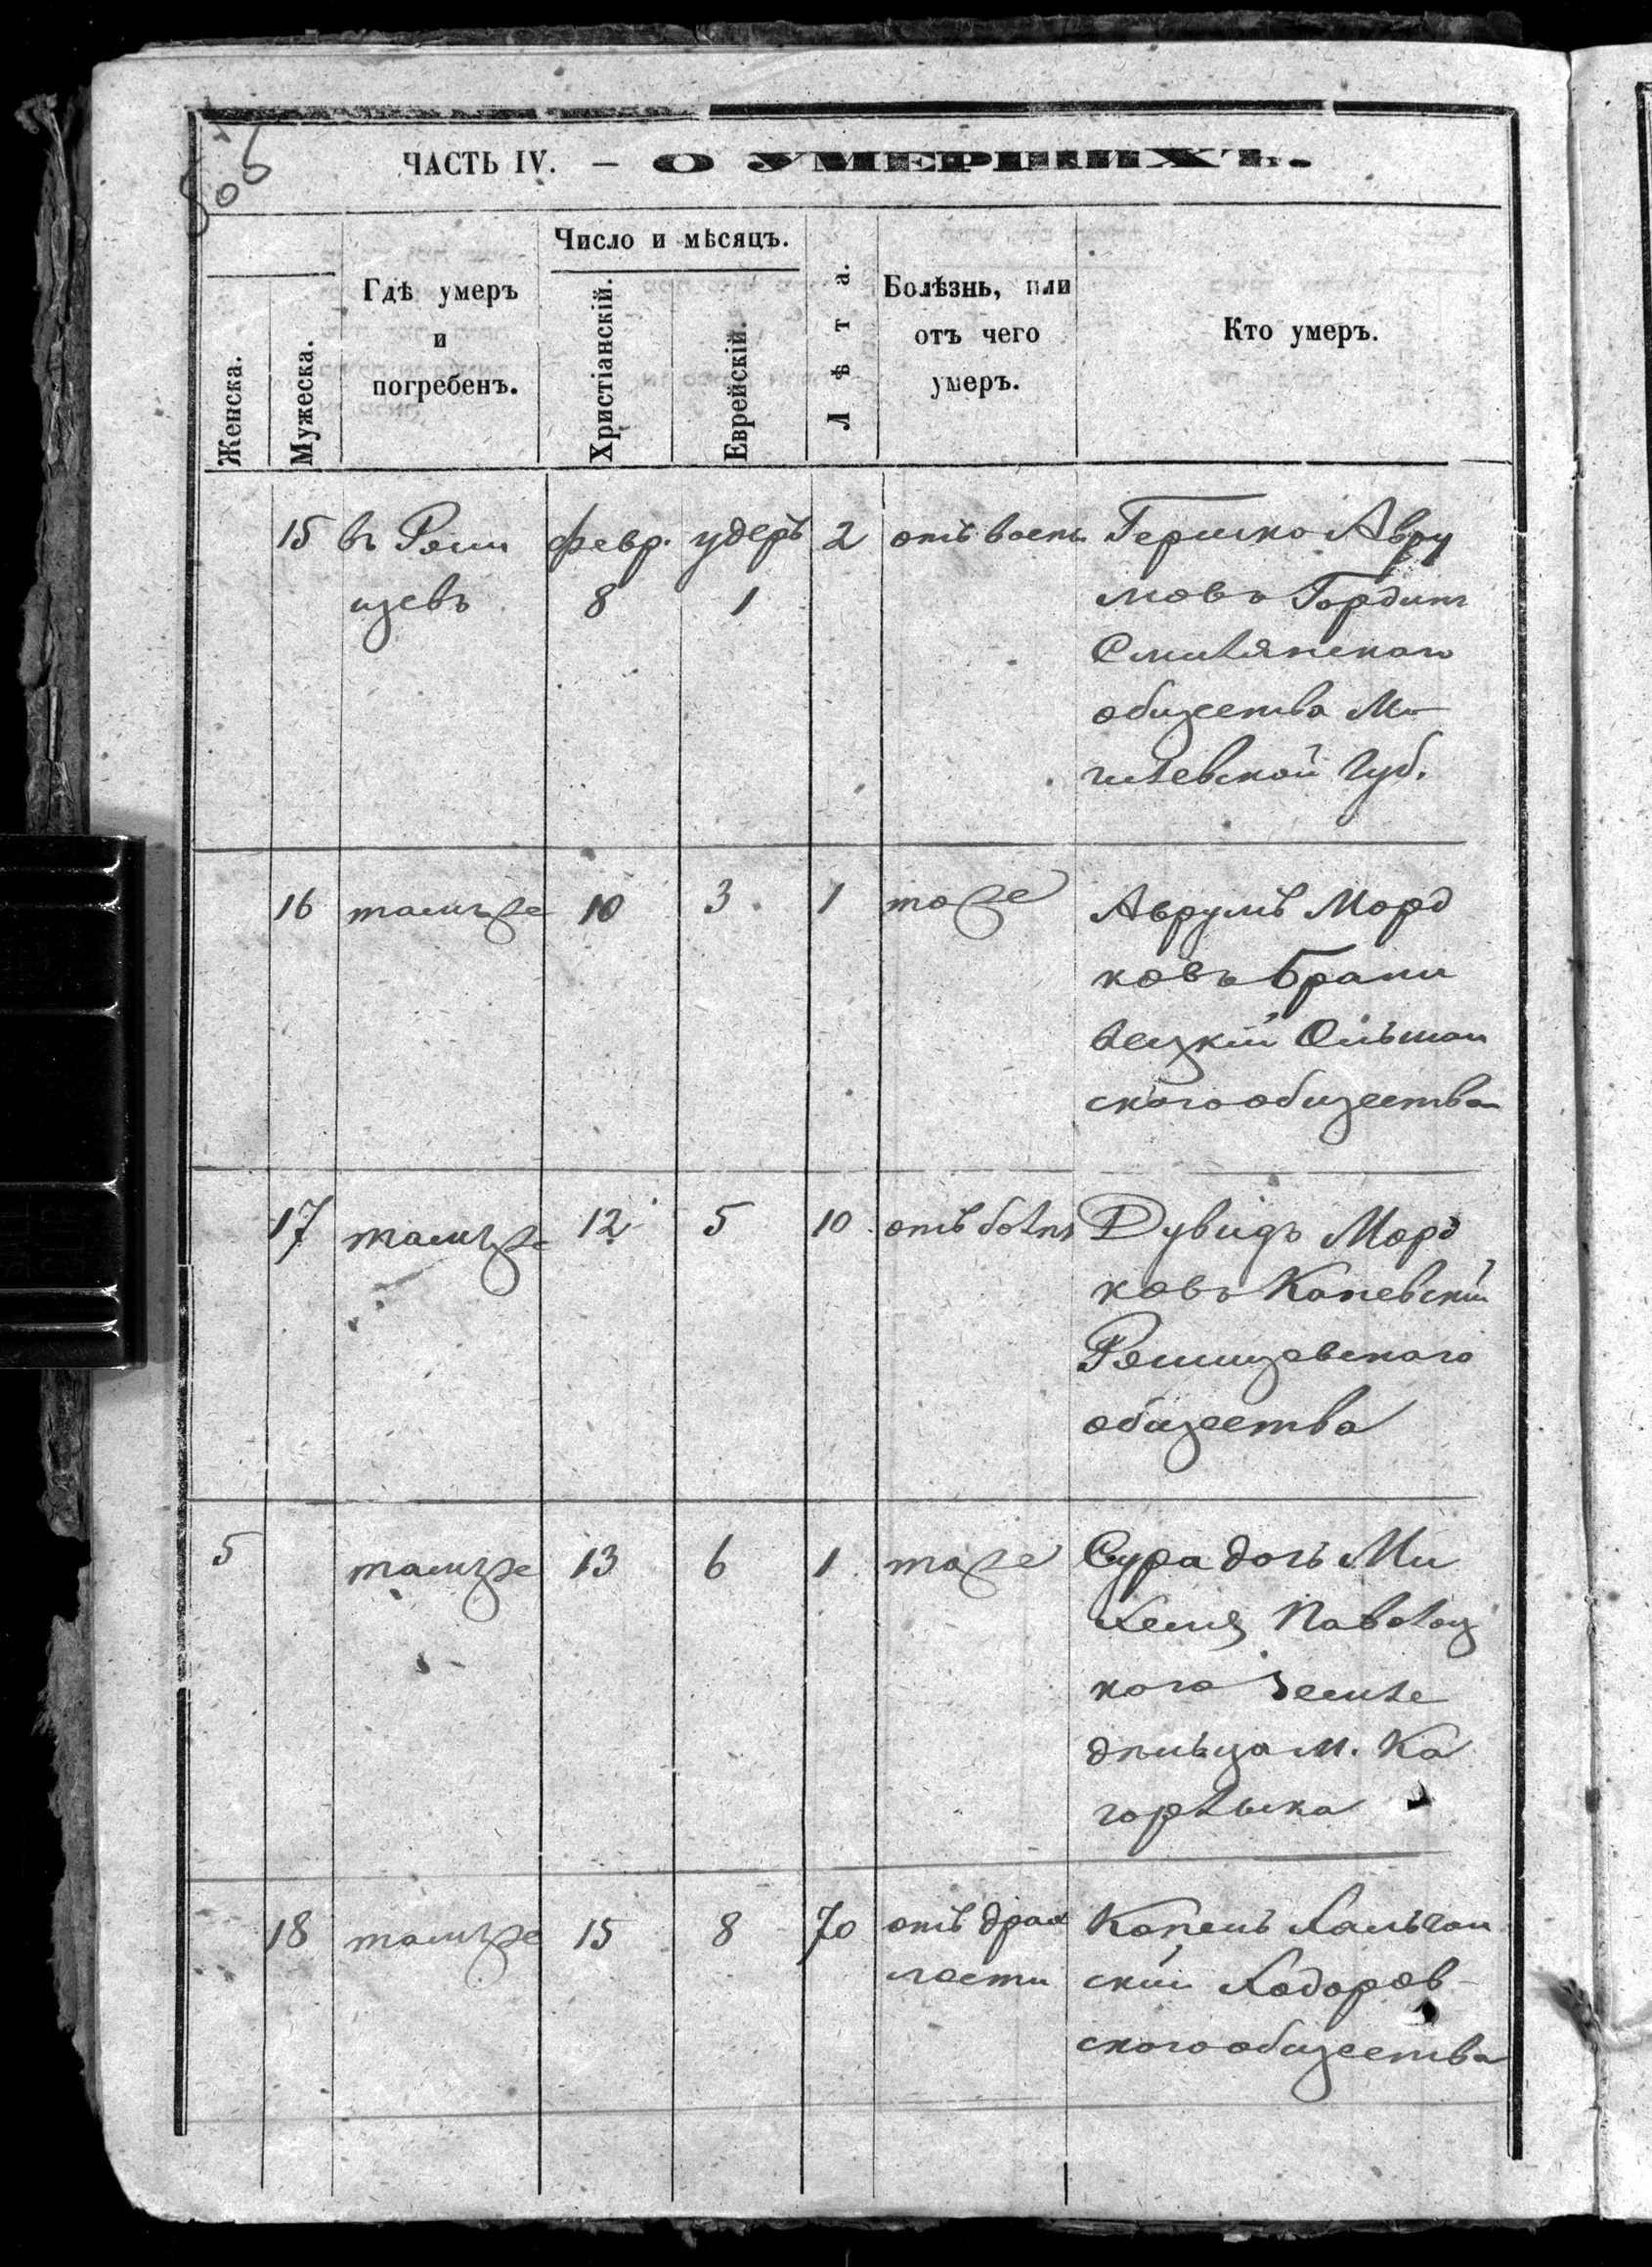 805
ЧАСТЬ IV. — О УМЕРШИХЪ.
Женска.
Мужеска.
Гдѣ умеръ
и
погребенъ.
Число и мѣсяцъ.
Христіанскій.
Еврейскій.
Лѣта.
Болѣзнь, или
отъ чего
умеръ.
Кто умеръ.
15 въ Ржи февр. удеръ 2 отъ воспы Гершко Авру
щевъ 8 1 мовъ Гордин
Смилянскаго
общества Мо
гилевской Губ.
16 тамъже 10 3 1 тоже Аврумъ Морд
ковъ Брани
вецкій Ольшан
ского общества
17 тамъже 12 5 10 отъ болѣз Дувидъ Морд
ковъ Каневскій
Ржищевского
общества
5 тамъже 13 6 1 тоже Сура дочь Ми
хеля Паволоц
кого Земле
дѣльца м. Ка
горлыка
18 тамъже 15 8 70 отъ драх Копель Халъчан
лости скій Ходоров-
ского общества